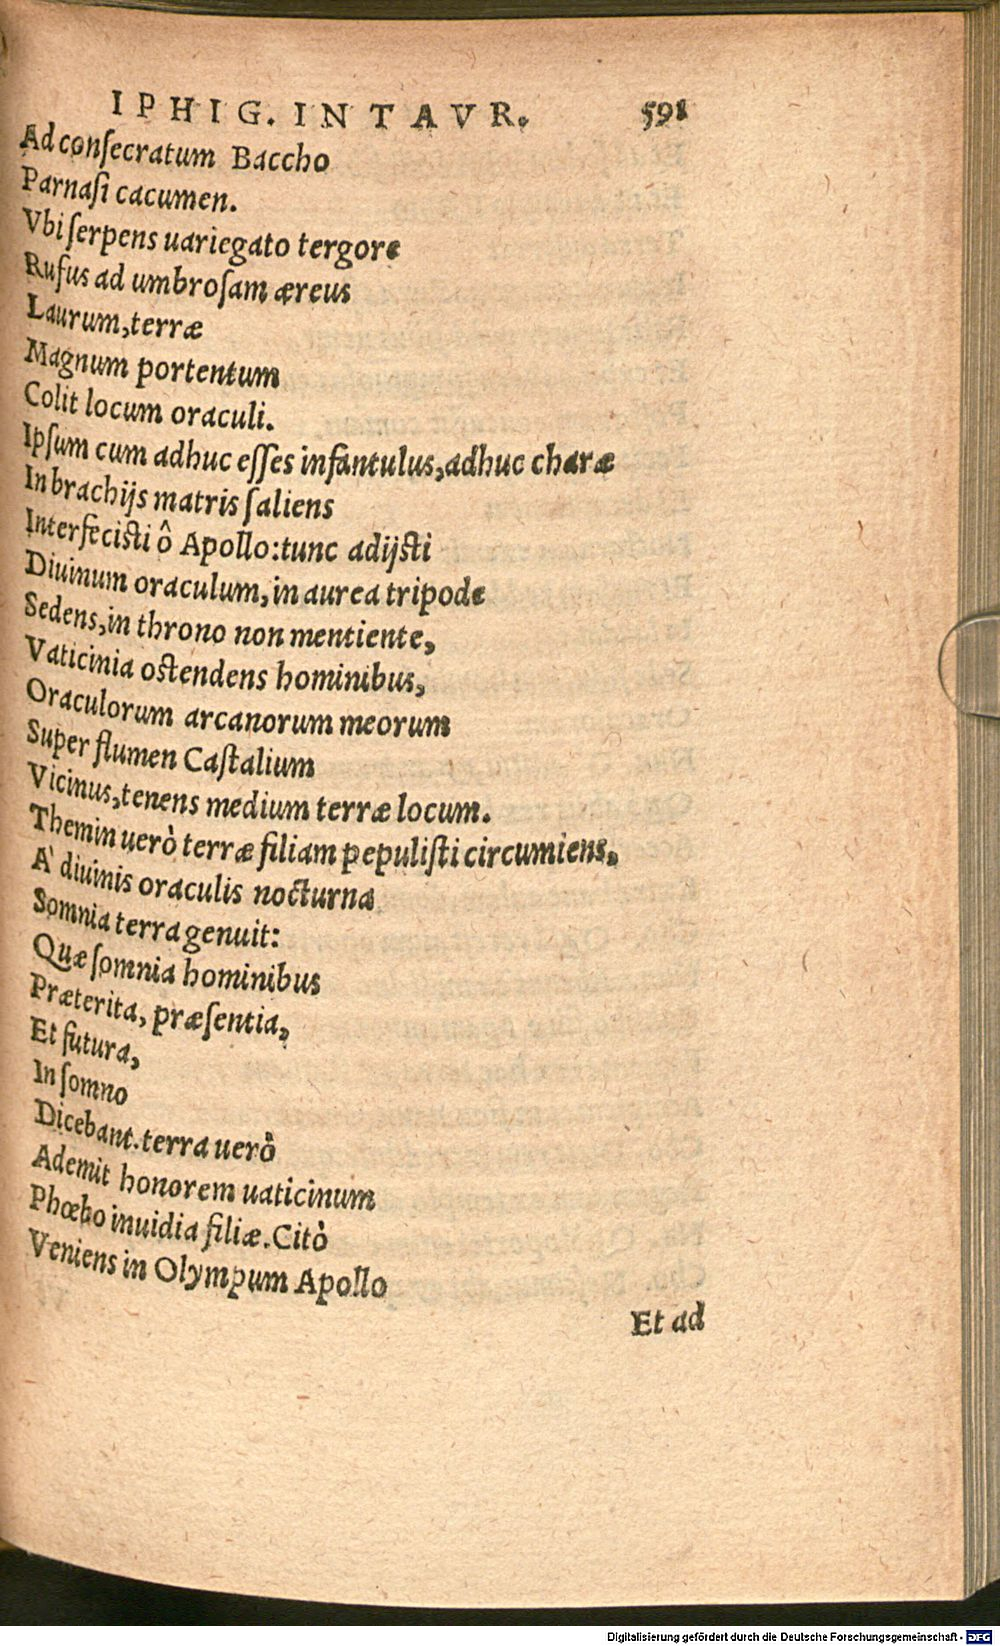 IPHIG. IN TAVR. 591
Ad conſecratum Baccho
Parnaſi cacumen.
Vbi ſerpens uariegato tergore
Rufus ad umbroſam æreus
Laurum, terræ
Magnum portentum
Colit locum oraculi.
Ipſum cum adhuc eſſes infantulus, adhuc charæ
In brachijs matris ſaliens
Interfeciſti ô Apollo: tunc adijſti
Diuinum oraculum, in aurea tripode
Sedens, in throno non mentiente,
Vaticinia oſtendens hominibus,
Oraculorum arcanorum meorum
Super flumen Caſtalium
Vicinus, tenens medium terræ locum.
Themin uerò terræ filiam pepuliſti circumiens,
A' diuinis oraculis nocturna
Somnia terra genuit:
Quæ ſomnia hominibus
Præterita, præſentia,
Et futura,
In ſomno
Dicebant. terra uerò
Ademit honorem uaticinum
Phœbo inuidia filiæ. Citò
Veniens in Olympum Apollo
Et ad
Digitalisierung gefördert durch die Deutsche Forschungsgemeinschaft - DFG